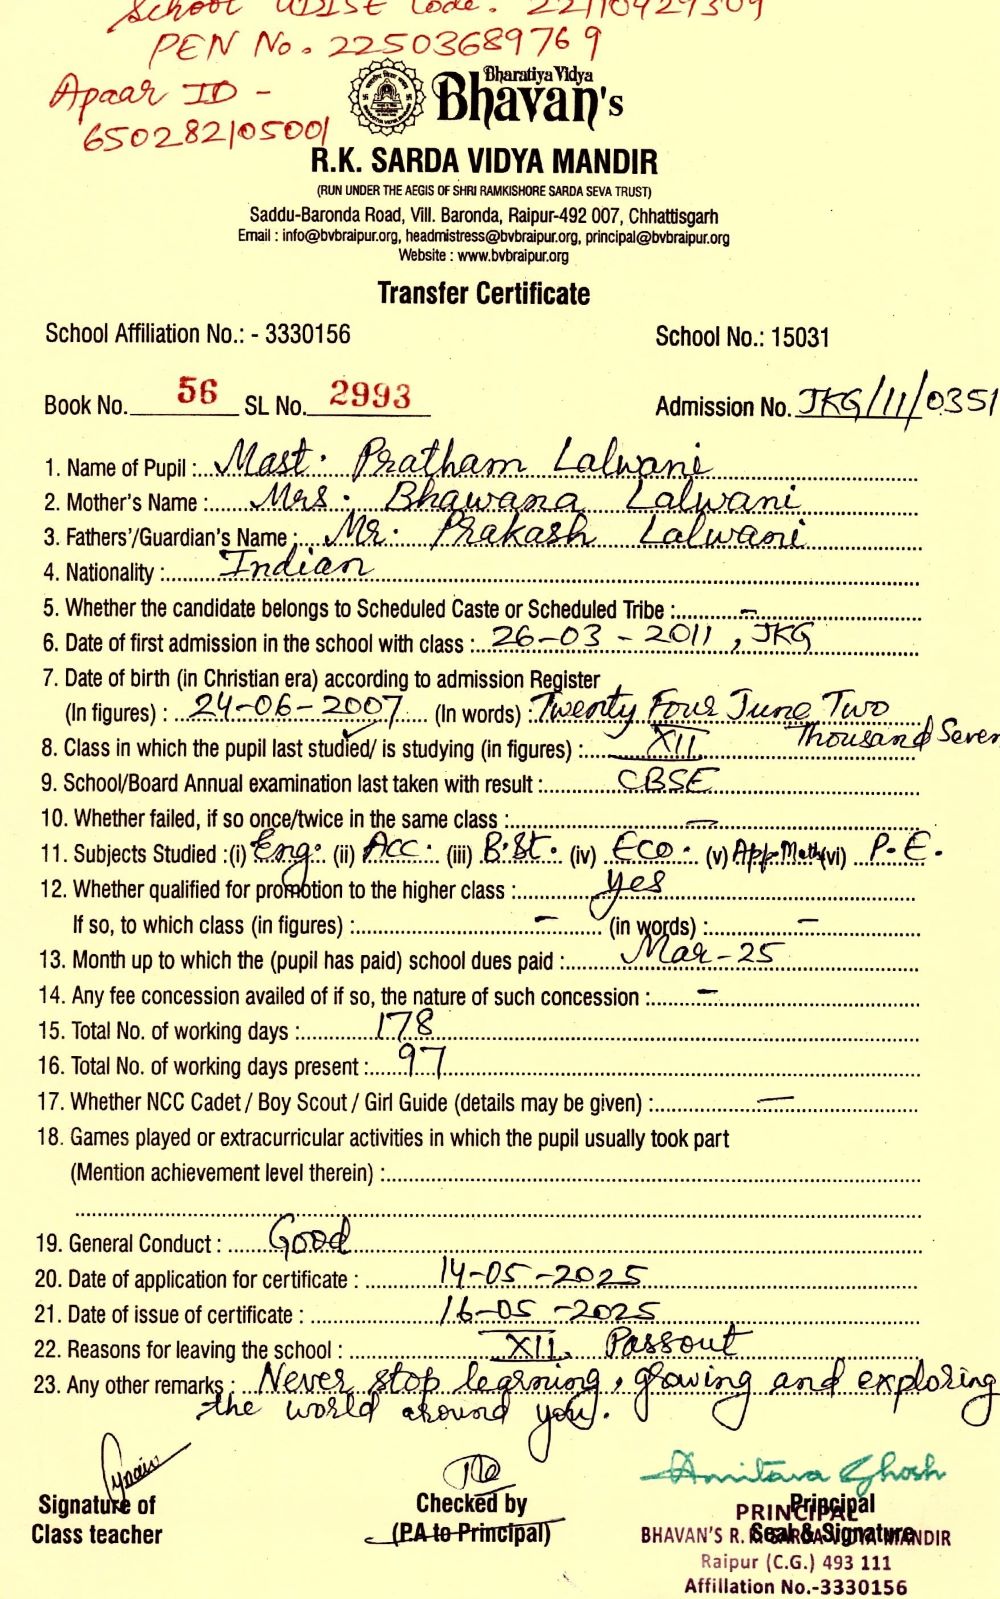 School UDISE Code. 22110429309
PEN No. 22503689769
Apaar ID -
650282105001
Bharatiya Vidya
Bhavan's
R.K. SARDA VIDYA MANDIR
(RUN UNDER THE AEGIS OF SHRI RAMKISHORE SARDA SEVA TRUST)
Saddu-Baronda Road, Vill. Baronda, Raipur-492 007, Chhattisgarh
Email : info@bvbraipur.org, headmistress@bvbraipur.org, principal@bvbraipur.org
Website : www.bvbraipur.org
Transfer Certificate
School Affiliation No.: - 3330156 School No.: 15031
Book No. 56 SL No. 2993 Admission No. JKG/11/0351
1. Name of Pupil : Mast. Pratham Lalwani
2. Mother's Name : Mrs. Bhawana Lalwani
3. Fathers'/Guardian's Name : Mr. Prakash Lalwani
4. Nationality : Indian
5. Whether the candidate belongs to Scheduled Caste or Scheduled Tribe : -
6. Date of first admission in the school with class : 26-03-2011, JKG
7. Date of birth (in Christian era) according to admission Register
(In figures) : 24-06-2007 (In words) : Twenty Four June Two
Thousand Seven
8. Class in which the pupil last studied/ is studying (in figures) : XII
9. School/Board Annual examination last taken with result : CBSE
10. Whether failed, if so once/twice in the same class : -
11. Subjects Studied :(i) Eng. (ii) Acc. (iii) B.St. (iv) Eco. (v) App.Math (vi) P.E.
12. Whether qualified for promotion to the higher class : yes
If so, to which class (in figures) : - (in words) : -
13. Month up to which the (pupil has paid) school dues paid : Mar-25
14. Any fee concession availed of if so, the nature of such concession : -
15. Total No. of working days : 178
16. Total No. of working days present : 97
17. Whether NCC Cadet / Boy Scout / Girl Guide (details may be given) : -
18. Games played or extracurricular activities in which the pupil usually took part
(Mention achievement level therein) :
19. General Conduct : Good
20. Date of application for certificate : 14-05-2025
21. Date of issue of certificate : 16-05-2025
22. Reasons for leaving the school : XII, Passout
23. Any other remarks : Never stop learning, growing and exploring
the world around you.
Amitava Ghosh
Signature of Checked by Principal
Class teacher (P.A to Principal) Seal & Signature
PRINCIPAL
BHAVAN'S R.K. SARDA VIDYA MANDIR
Raipur (C.G.) 493 111
Affillation No.-3330156